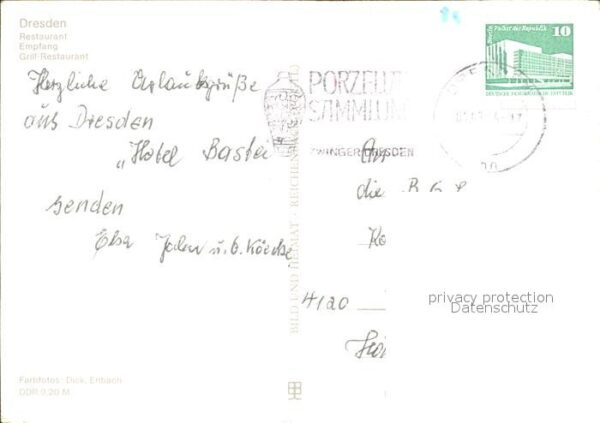 Dresden
Restaurant
Empfang
Grill-Restaurant
Herzliche Urlaubsgrüße
aus Dresden
"Hotel Bastei
senden
Elsa
u.
PORZELLA
SAMMLUN
ZWINGER DRESDEN
Palast der Republik
10
DEUTSCHE DEMOKRATISCHE REPUBLIK
An
die
4120
BILD UND HEIMAT · REICHENBACH
privacy protection
Datenschutz
Farbfotos: Dick, Erlbach
DDR 0,20 M